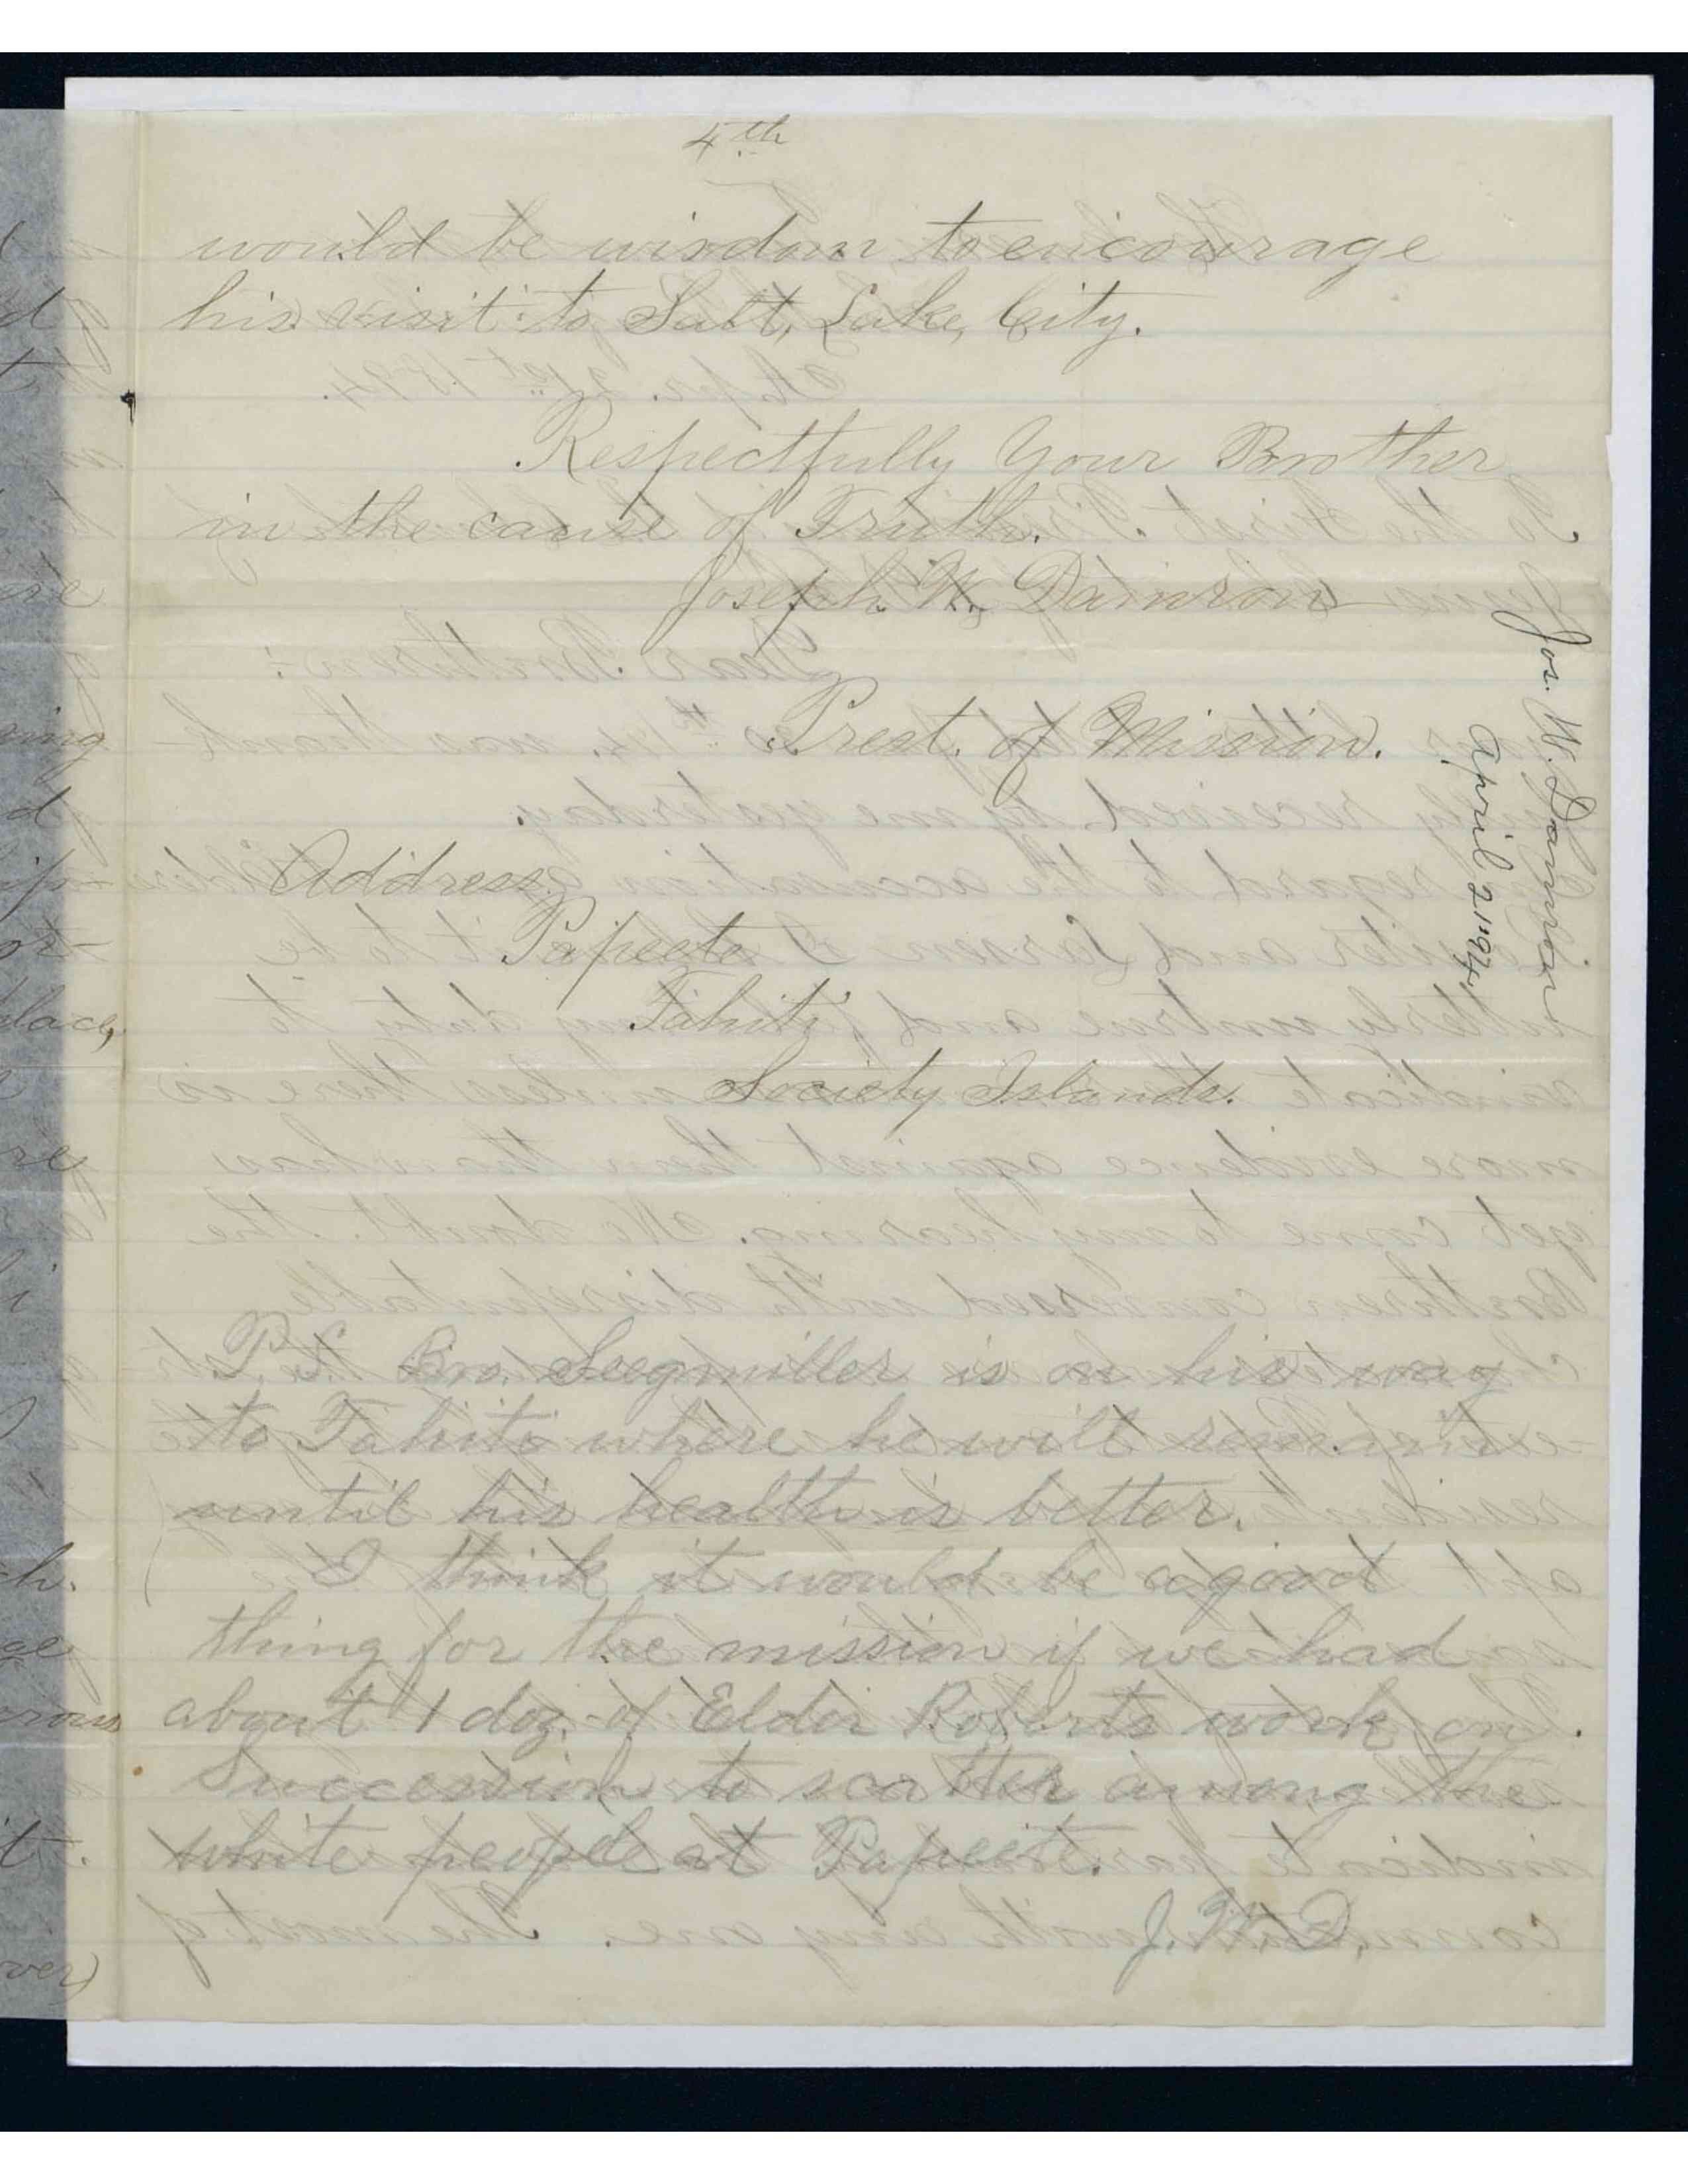 4th
would be wisdom to encourage
his visit to Salt, Lake, City.
Respectfully Your Brother
in the cause of Truth.
Joseph. W. Damron
Prest. of Mission.
Address,
Papeete
Tahiti
Society Islands.
Jos. W. Damron
April 21 '94.
P.S. Bro. Seegmiller is on his way
to Tahiti where he will remain
until his health is better.
I think it would be a good
thing for the mission if we had
about 1 doz. of Elder Roberts work on
Succession to scatter among the
white people at Papeete.
J. W. D.